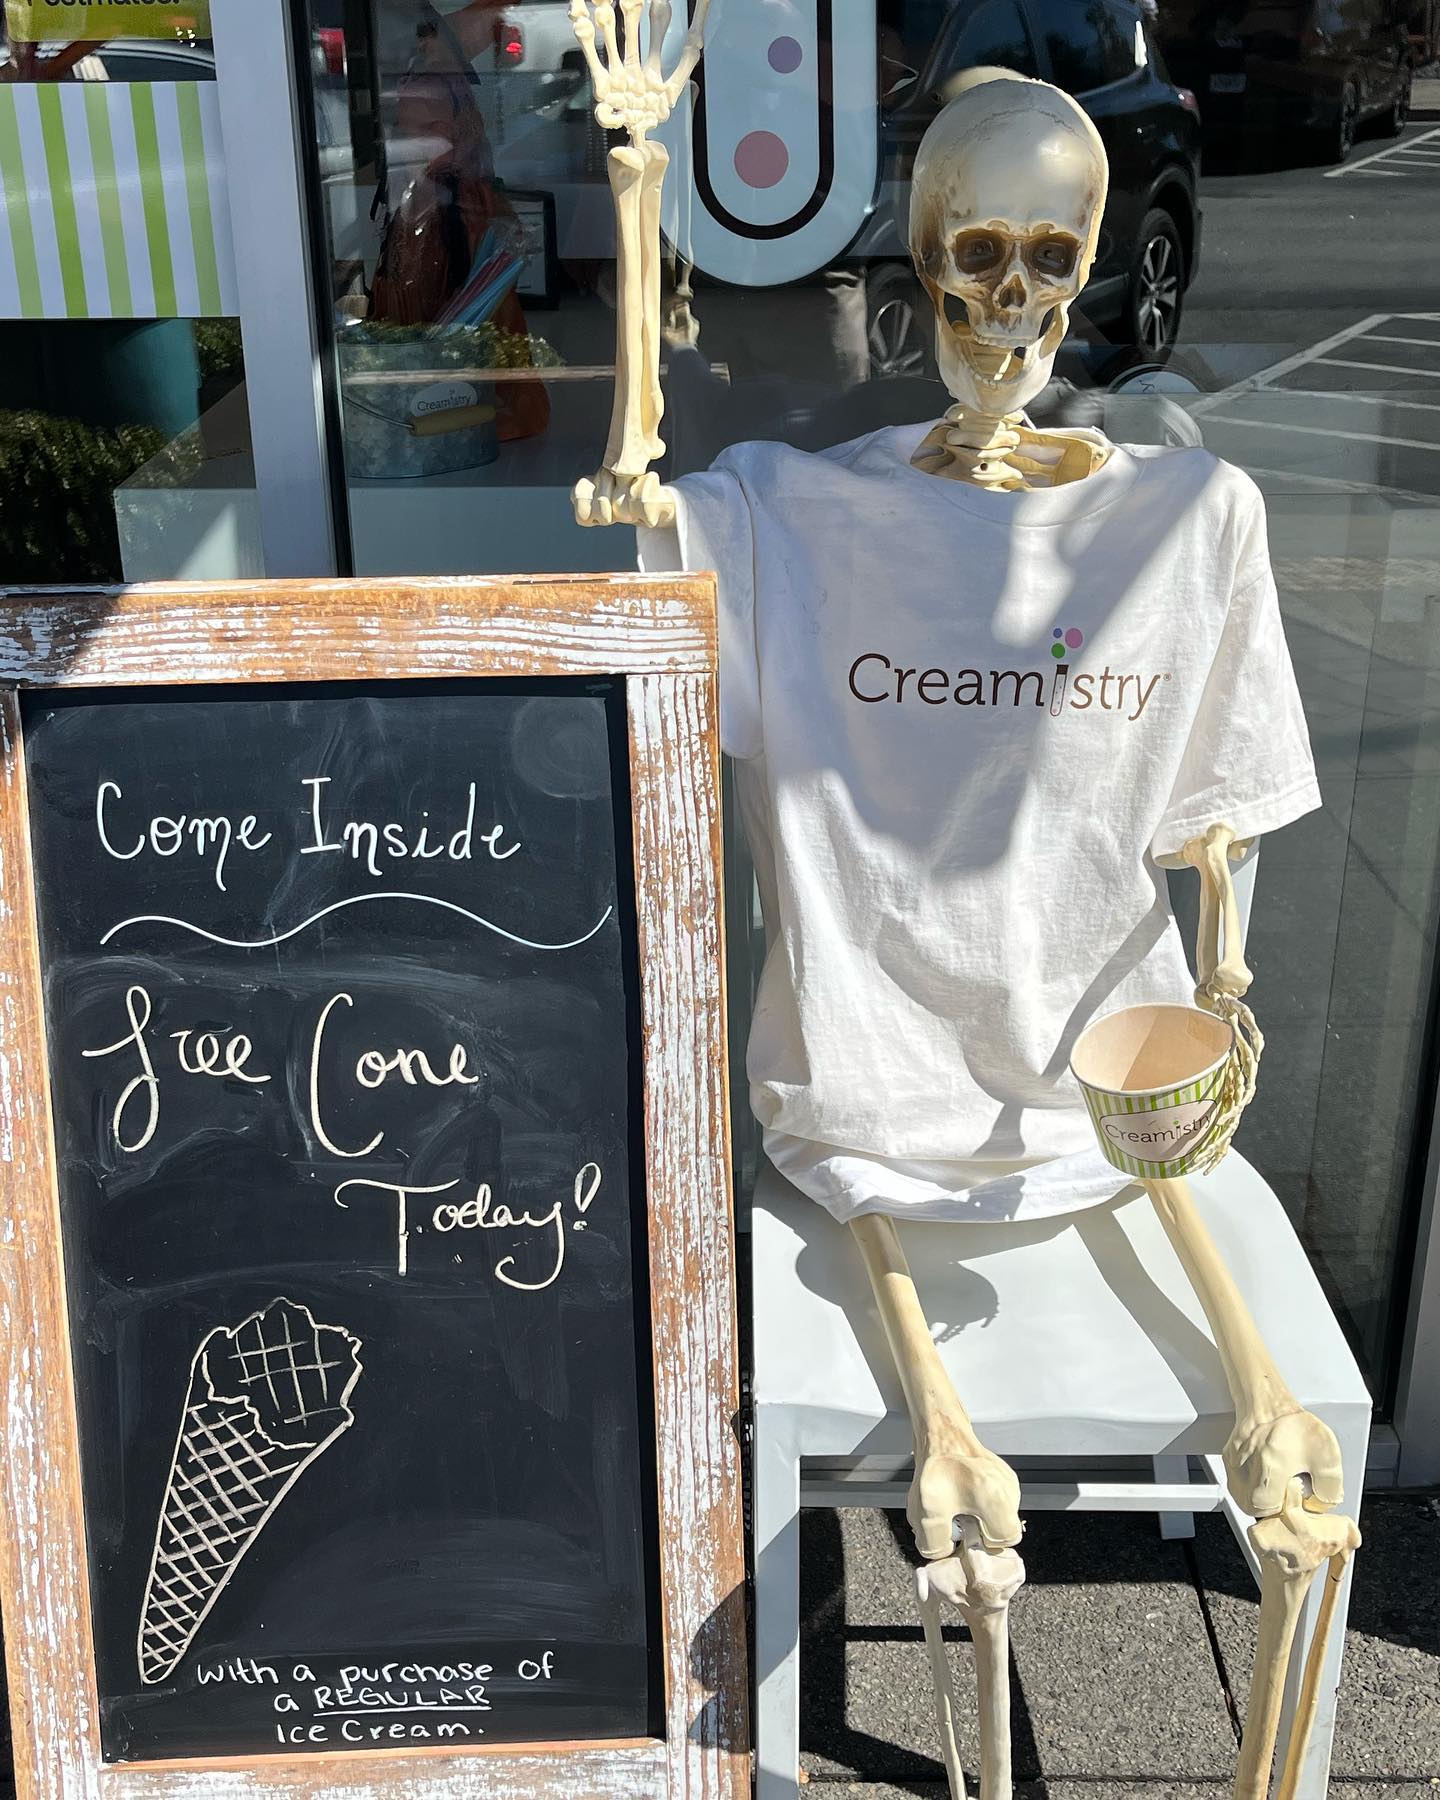 Postmates.
Creamistry
Creamistry®
Come Inside
Free Cone
Today!
Creamistry
with a purchase of
a REGULAR
Ice Cream.